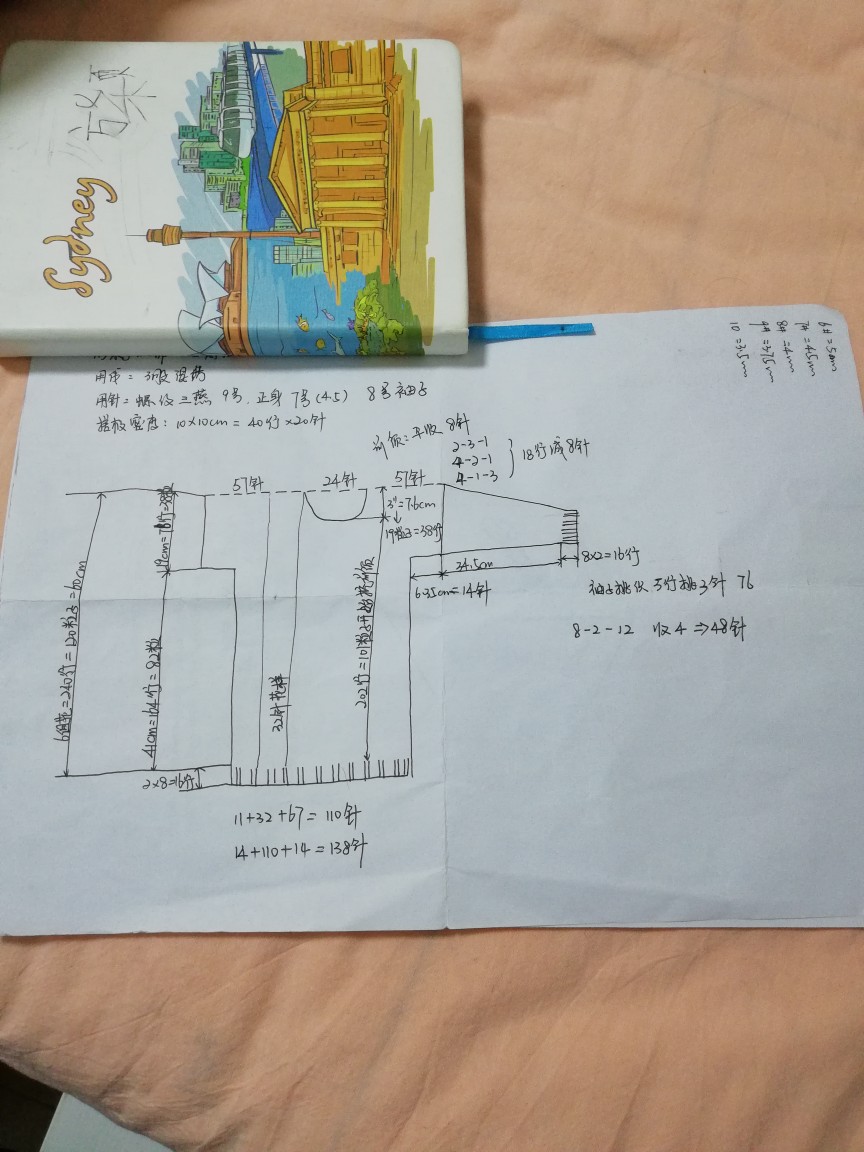 Sydney
6# =5mm
7# =4.5mm
8# =4mm
9# =3.75mm
10 =3.5mm
用针：螺纹三燕 9号，正身 7号(4.5) 8号袖子
搓板密度：10×10cm = 40行×20针
前领：平收 8针
2-3-1
4-2-1
4-1-3
18行减8针
57针
24针
57针
3"=7.6cm
=38行
34.5cm
6.35cm=14针
8×2=16行
5行挑3针 76
8-2-12 收4 ⇒48针
=240行=120粒子=60cm
19cm=
41cm=164行=82粒
32针花样
202行=101粒子开始掏前领
2×8=16行
11+32+67=110针
14+110+14=138针